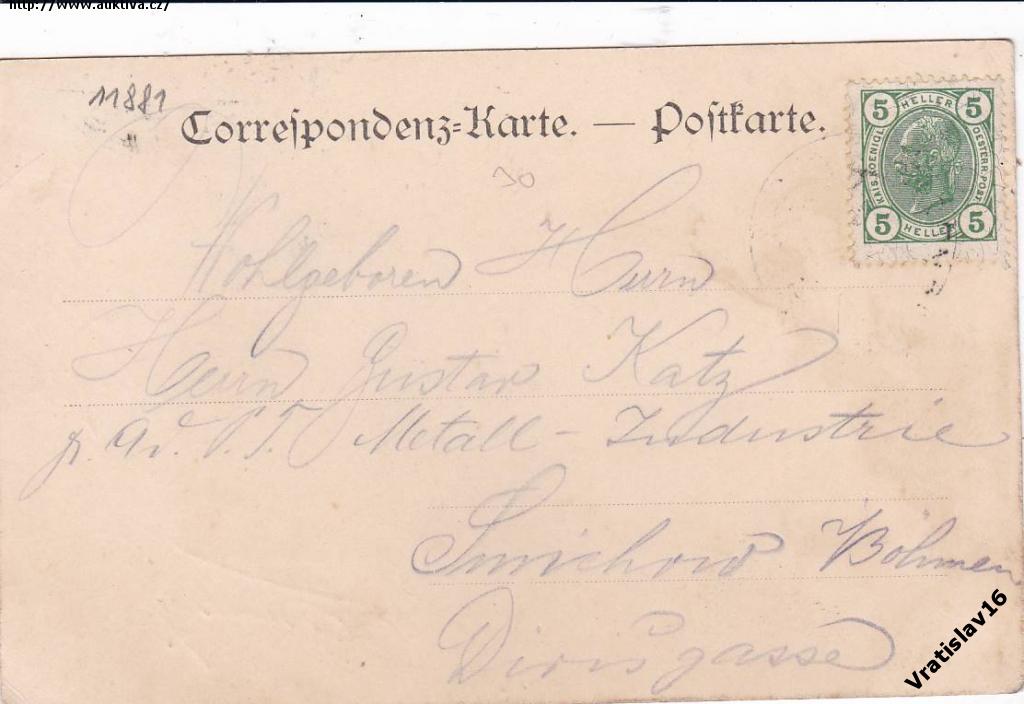 http://www.auktiva.cz/
11881
Correspondenz-Karte. — Postkarte.
30
5 HELLER 5
KAIS. KOENIGL. OESTERR. POST
5 HELLER 5
Wohlgeboren Herrn
Herrn Gustav Katz
p. Ad. P. T. Metall-Industrie
Smichow Böhmen
Vratislav16